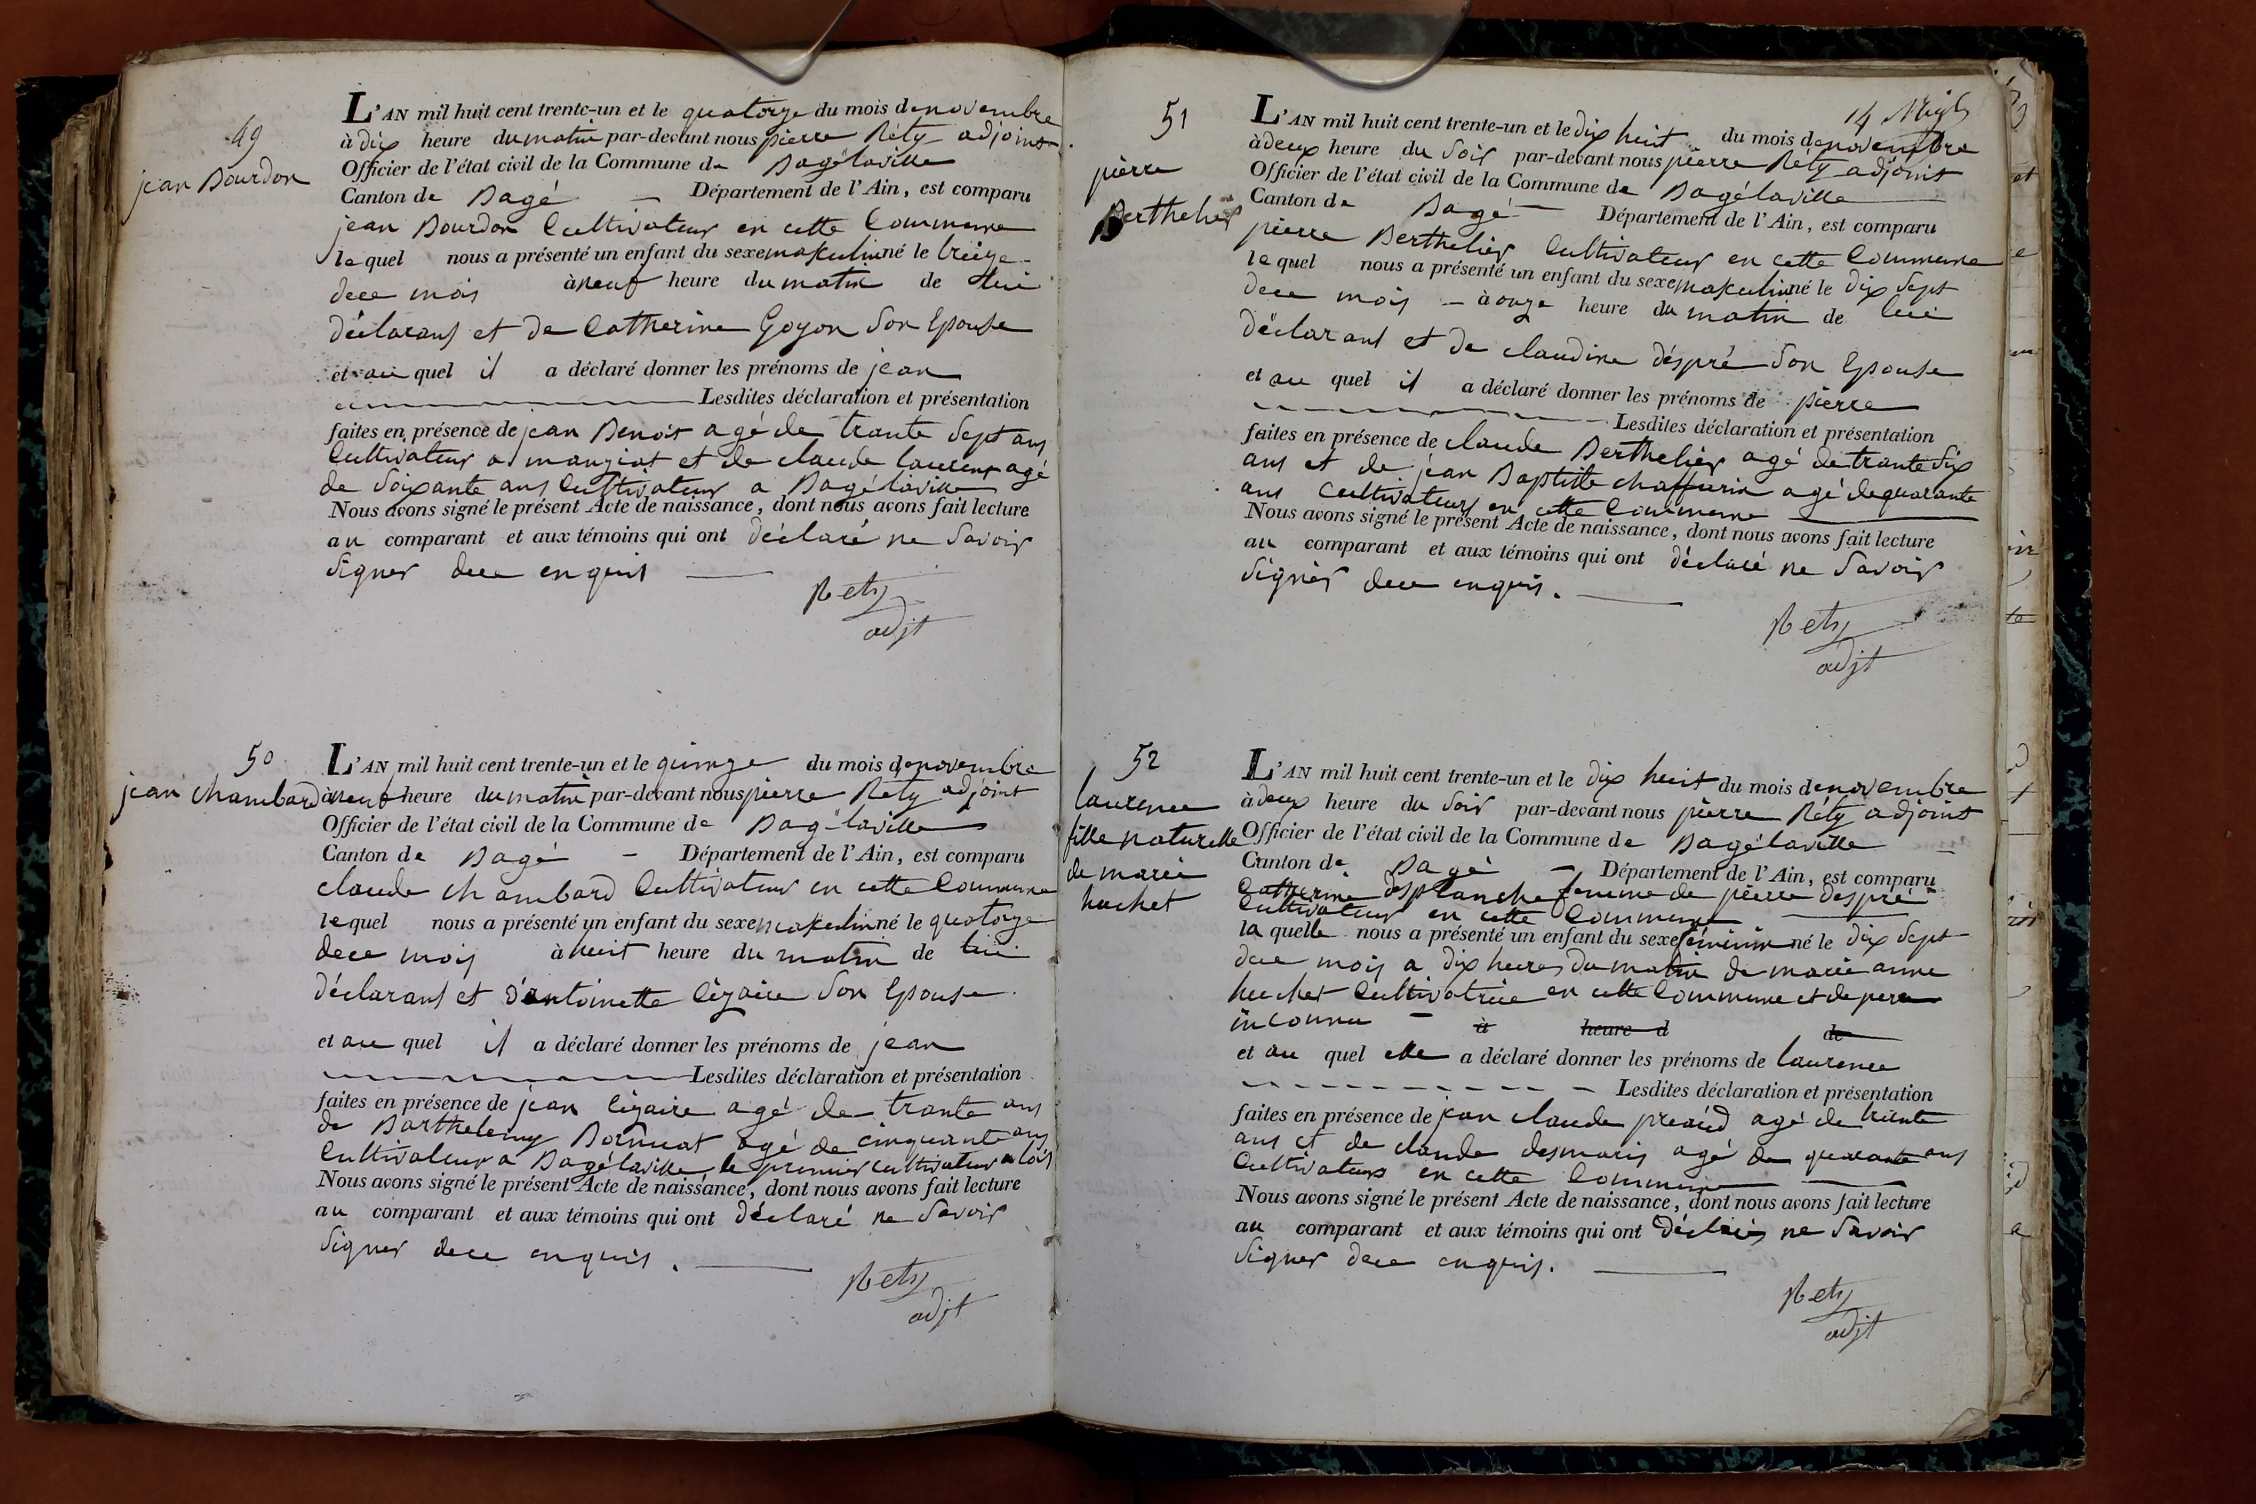 49
jean Bourdon
L'AN mil huit cent trente-un et le quatorze du mois de novembre
à dix heure du matin par-devant nous pierre Réty adjoint
Officier de l'état civil de la Commune de Bagélaville
Canton de Bagé — Département de l'Ain, est comparu
jean Bourdon Cultivateur en cette Commune
lequel nous a présenté un enfant du sexe maskulin né le treize
dece mois à neuf heure du matin de lui
déclarant et de Catherine Goyon Son Epouse
et au quel il a déclaré donner les prénoms de jean
Lesdites déclaration et présentation
faites en présence de jean Benoit agé de trante Sept ans
Cultivateur a manziat et de claude laurent agé
de Soixante ans Cultivateur a Bagélaville
Nous avons signé le présent Acte de naissance, dont nous avons fait lecture
au comparant et aux témoins qui ont déclaré ne Savoir
Signer dece enquis —
Rety
adjt
50
jean chambard
L'AN mil huit cent trente-un et le quinze du mois de novembre
à neuf heure du matin par-devant nous pierre Réty adjoint
Officier de l'état civil de la Commune de Bagélaville
Canton de Bagé — Département de l'Ain, est comparu
claude chambard Cultivateur en cette Commune
lequel nous a présenté un enfant du sexe maskulin né le quatorze
dece mois à huit heure du matin de lui
déclarant et d'antoinette Cizaire Son Epouse
et au quel il a déclaré donner les prénoms de jean
Lesdites déclaration et présentation
faites en présence de jean Cizaire agé de trante ans
de Barthelemy agé de cinquante ans
Cultivateur a Bagélaville le premier cultivateur a
Nous avons signé le présent Acte de naissance, dont nous avons fait lecture
au comparant et aux témoins qui ont déclaré ne Savoir
Signer dece enquis. —
Rety
adjt
14
51
pierre
Berthelier
L'AN mil huit cent trente-un et le dix huit du mois de novembre
à deux heure du Soir par-devant nous pierre Réty adjoint
Officier de l'état civil de la Commune de Bagélaville
Canton de Bagé — Département de l'Ain, est comparu
pierre Berthelier Cultivateur en cette Commune
lequel nous a présenté un enfant du sexe maskulin né le dix Sept
dece mois — à onze heure du matin de lui
déclarant et de claudine déspré Son Epouse
et au quel il a déclaré donner les prénoms de pierre
Lesdites déclaration et présentation
faites en présence de claude Berthelier agé de trante Six
ans et de jean Baptiste chaffurin agé de quarante
ans Cultivateurs en cette Commune
Nous avons signé le présent Acte de naissance, dont nous avons fait lecture
au comparant et aux témoins qui ont déclaré ne Savoir
Signér dece enquis. —
Rety
adjt
52
laurence
fille naturelle
de marie
huchet
L'AN mil huit cent trente-un et le dix huit du mois de novembre
à deux heure du Soir par-devant nous pierre Réty adjoint
Officier de l'état civil de la Commune de Bagélaville —
Canton de Bagé — Département de l'Ain, est comparu
Catherine desplanche femme de pierre déspré
Cultivateur en cette Commune
la quelle nous a présenté un enfant du sexe féminin né le dix Sept
dece mois a dix heures du matin de marie anne
huchet Cultivatrice en cette Commune et de pere
inconnu — à heure d de
et au quel elle a déclaré donner les prénoms de laurence
Lesdites déclaration et présentation
faites en présence de jean claude preaud agé de trente
ans et de claude desmaris agé de quarante ans
Cultivateurs en cette Commune
Nous avons signé le présent Acte de naissance, dont nous avons fait lecture
au comparant et aux témoins qui ont Déclaré ne Savoir
Signer dece enquis. —
Rety
adjt